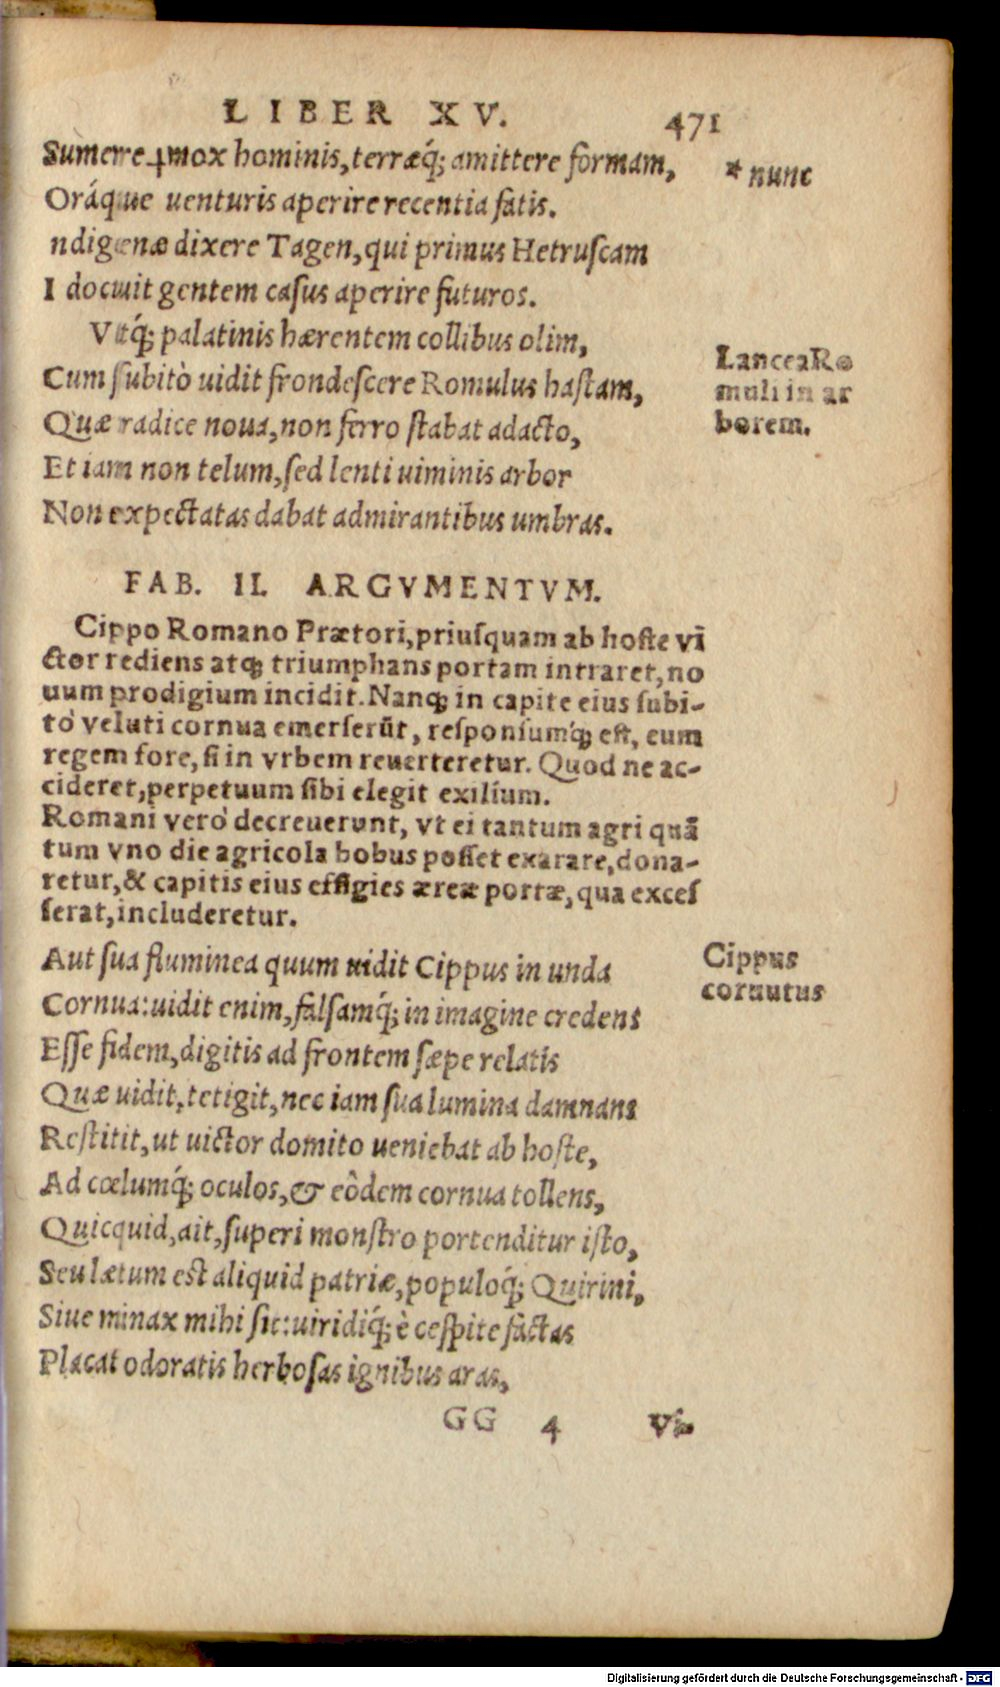 LIBER XV. 471
Sumere ☩mox hominis, terræq́; amittere formam,
* nunc
Oráque uenturis aperire recentia fatis.
ndigenæ dixere Tagen, qui primus Hetruſcam
I docuit gentem caſus aperire futuros.
Vtq́; palatinis hærentem collibus olim,
Cum ſubitò uidit frondeſcere Romulus haſtam,
Quæ radice noua, non ferro ſtabat adacto,
Et iam non telum, ſed lenti uiminis arbor
Non expectatas dabat admirantibus umbras.
Lancea Ro
muli in ar
borem.
FAB. II. ARGVMENTVM.
Cippo Romano Prætori, priuſquam ab hoſte vi
ctor rediens atq; triumphans portam intraret, no
uum prodigium incidit. Nanq; in capite eius ſubi-
tò veluti cornua emerſerūt, reſponſumq́; eſt, eum
regem fore, ſi in vrbem reuerteretur. Quod ne ac-
cideret, perpetuum ſibi elegit exilium.
Romani verò decreuerunt, vt ei tantum agri quā
tum vno die agricola bobus poſſet exarare, dona-
retur, & capitis eius effigies æreæ portæ, qua exceſ
ſerat, includeretur.
Aut ſua fluminea quum uidit Cippus in unda
Cornua: uidit enim, falſamq́; in imagine credens
Eſſe fidem, digitis ad frontem ſæpe relatis
Quæ uidit, tetigit, nec iam ſua lumina damnans
Reſtitit, ut uictor domito ueniebat ab hoſte,
Ad cœlumq́; oculos, & eôdem cornua tollens,
Quicquid, ait, ſuperi monſtro portenditur iſto,
Seu lætum eſt aliquid patriæ, populoq́; Quirini,
Siue minax mihi ſit: uiridiq́; è ceſpite factas
Placat odoratis herboſas ignibus aras,
Cippus
cornutus
GG 4 Vi-
Digitalisierung gefördert durch die Deutsche Forschungsgemeinschaft - DFG